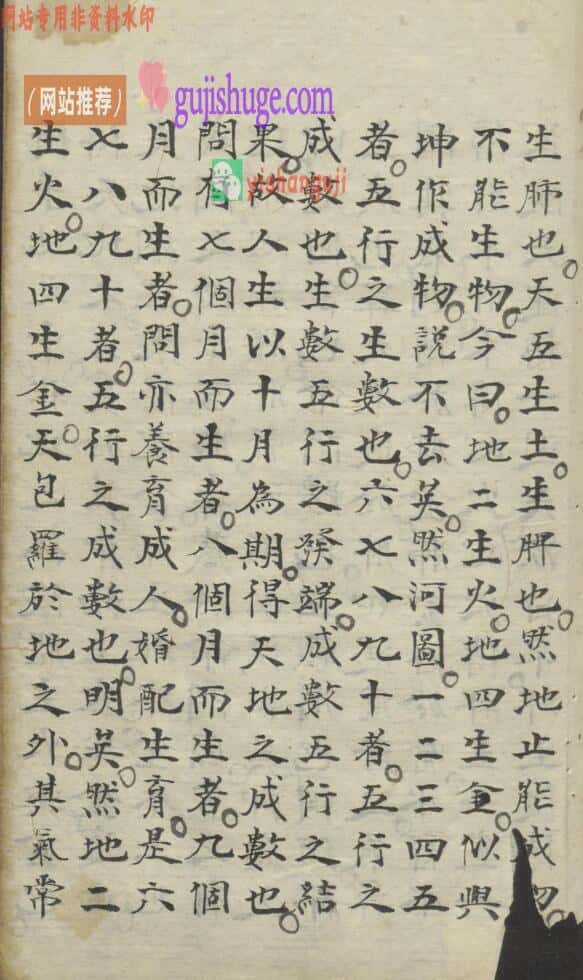 网站专用非资料水印
（网站推荐）
gujishuge.com
yishanguji
生肺也。天五生土。生脾也。然地止能成物。
不能生物。今曰。地二生火。地四生金。似與
坤作成物。説不去矣。然河圖。一二三四五
者。五行之生數也。六七八九十者。五行之
成數也。生數五行之發端。成數五行之結
果。故人生以十月為期。得天地之成數也。
問有七個月而生者。八個月而生者。九個
月而生者。問亦養育成人。婚配生育。是六
七八九十者。五行之成數也。明矣。然地二
生火。地四生金。天包羅於地之外。其氣常